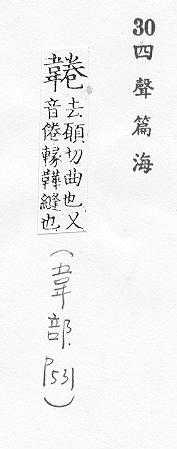 30 四聲篇海
去願切曲也又
音倦縫也
(韋部 P531)